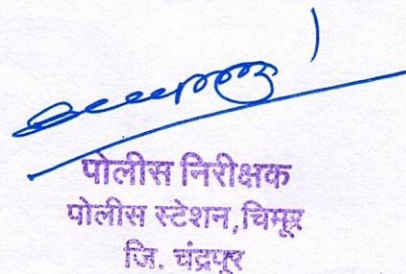 पोलीस निरीक्षक
पोलीस स्टेशन,चिमूर
जि. चंद्रपूर